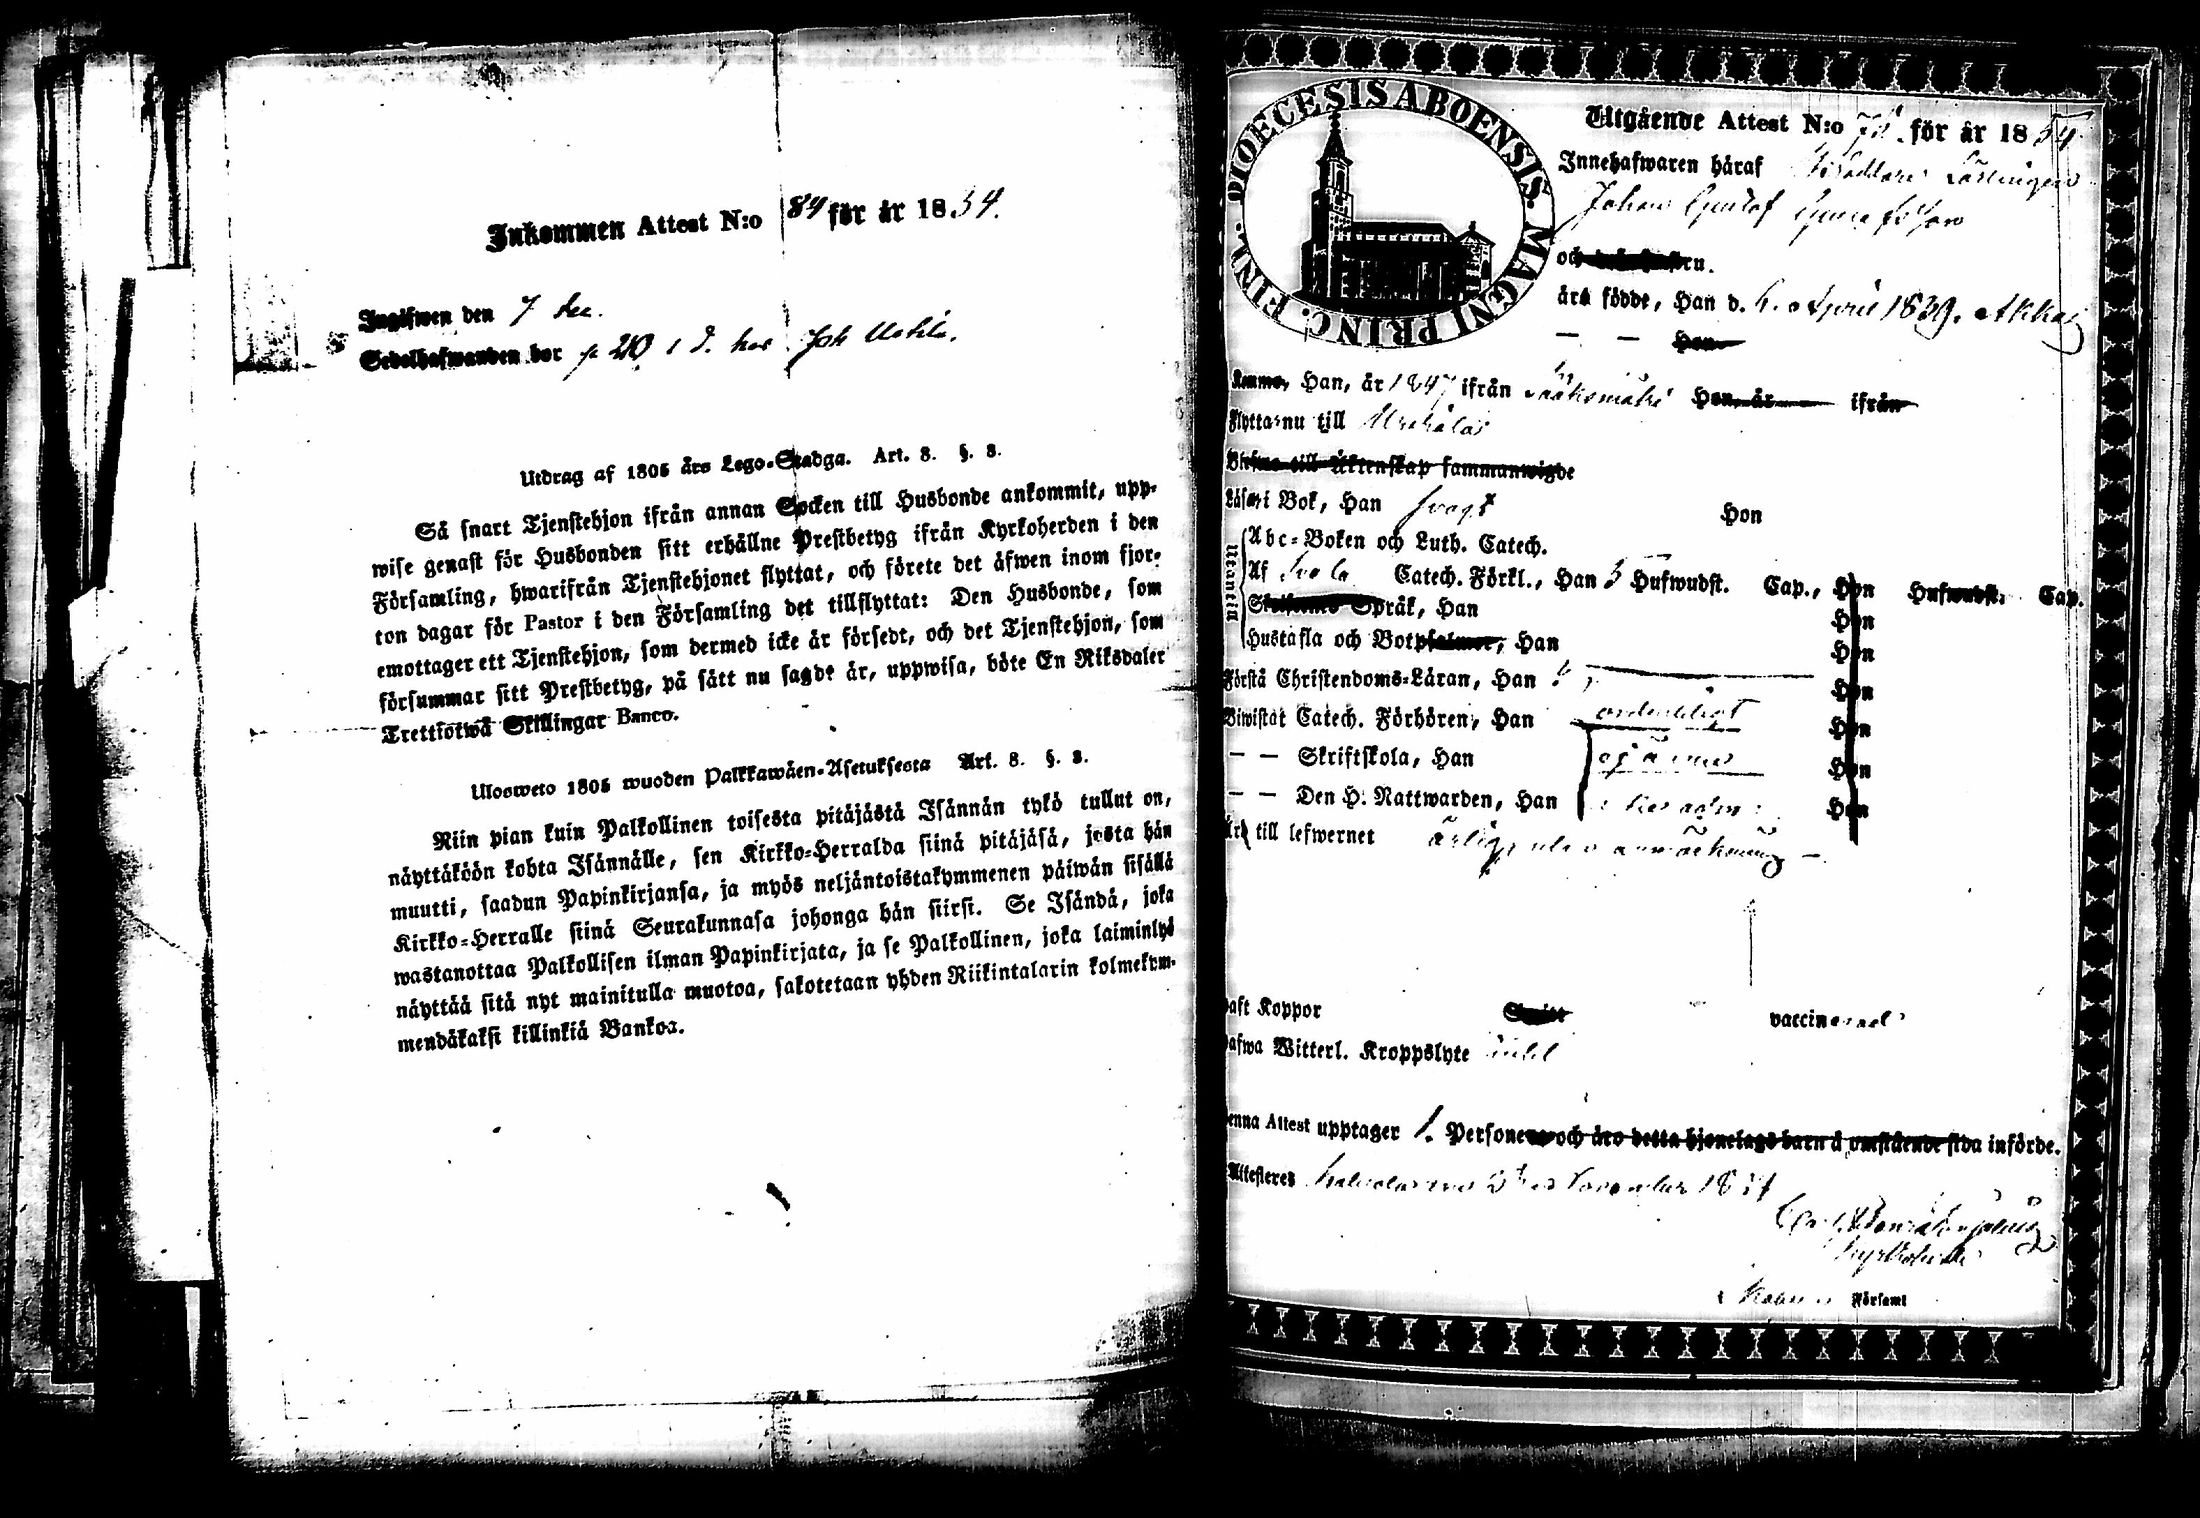 Inkommen Attest N:o 84 för år 1854.
Ingifwen den 7 Dec.
Sedelhafwanden bor p 210 i d. hos Joh Uotila.
Utdrag af 1805 års Lego-Stadga. Art. 8. §. 3.
Så snart Tjenstehjon ifrån annan Socken till Husbonde ankommit, upp-
wise genast för Husbonden sitt erhållne Prestbetyg ifrån Kyrkoherden i den
Församling, hwarifrån Tjenstehjonet flyttat, och förete det äfwen inom fjor-
ton dagar för Pastor i den Församling det tillflyttat: Den Husbonde, som
emottager ett Tjenstehjon, som dermed icke är försedt, och det Tjenstehjon, som
försummar sitt Prestbetyg, på sätt nu sagdt är, uppwisa, böte En Riksdaler
Trettiotwå Skillingar Banco.
Ulosweto 1805 wuoden Palkkawäen-Asetuksesta Art. 8. §. 3.
Niin pian kuin Palkollinen toisesta pitäjästä Isännän tykö tullut on,
näyttäköön kohta Isännälle, sen Kirkko-Herralda siinä pitäjäsä, josta hän
muutti, saadun Papinkirjansa, ja myös neljäntoistakymmenen päiwän sisällä
Kirkko-Herralle siinä Seurakunnasa johonga hän siirsi. Se Isändä, joka
wastanottaa Palkollisen ilman Papinkirjata, ja se Palkollinen, joka laiminlyö
näyttää sitä nyt mainitulla muotoa, sakotetaan yhden Riikintalarin kolmekym-
mendäkaksi killinkiä Bankoa.
DIOECESIS ABOENSIS. MAGNI PRINC. FINL.
Utgående Attest N:o för år 1854
Innehafwaren häraf Lärlingen
Johan Gustaf Gustafsson
och
äro födde, Han d. April 1839. Akkas
— — Hon
Komma, Han, år 1847 ifrån Sääksmäki Hon, år ifrån
Flytta nu till Urdiala
Blefwo till Äktenskap sammanwigde
Läsa i Bok, Han svagt Hon
Utantill
Abc-Boken och Luth. Catech.
Af Catech. Förkl., Han 5 Hufwudst. Cap., Hon Hufwudst. Cap.
Skriftenes Språk, Han Hon
Hustafla och Botpsalmer, Han Hon
Förstå Christendoms-Läran, Han Hon
Biwistat Catech. Förhören, Han ordentligt Hon
— — Skriftskola, Han Hon
— — Den H. Nattwarden, Han Hon
Äro till lefwernet ärlig, utan anmärkning
haft Koppor vaccinerad
hafwa Witterl. Kroppslyte intet
Denna Attest upptager 1. Personer och äro detta hjonelags barn å omstående sida införde.
Attesteres November 1854
Carl
Kyrkoherde
i Församl